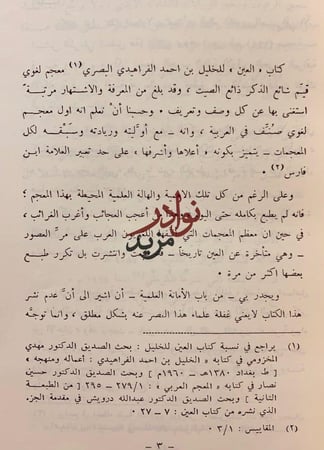 كتاب « العين » للخليل بن احمد الفراهيدي البصري (١) معجم لغوي
قيّم شائع الذكر ذائع الصيت ، وقد بلغ من المعرفة والاشتهار مرتبة
استغنى بها عن كل وصف وتعريف . وحسبنا أن نعلم انه أول معجم
لغوي صنّف في العربية ، وانه ـ مع أوّليته وريادته وسبقه لكل
المعجمات ـ يتميز بكونه « أعلاها وأشرفها » على حد تعبير العلامة ابن
فارس (٢) .
وعلى الرغم من كل تلك الأهمية والهالة العلمية المحيطة بهذا المعجم ؛
فانه لم يطبع بكامله حتى اليوم أعجب العجائب وأغرب الغرائب ،
في حين ان معظم المعجمات التي اللغويون العرب على مرّ العصور
ـ وهي متأخرة عن العين تاريخاً ـ وانتشرت بل تكرر طبع
بعضها أكثر من مرة .
ويجدر بي ـ من باب الأمانة العلمية ـ أن اشير الى أنّ عدم نشر
هذا الكتاب لايعني غفلة علماء هذا العصر عنه بشكل مطلق ، وانما توجّه
(١) يراجع في نسبة كتاب العين للخليل : بحث الصديق الدكتور مهدي
المخزومي في كتابه « الخليل بن احمد الفراهيدي : أعماله ومنهجه »
[ ط بغداد ١٣٨٠هـ ـ ١٩٦٠م ] وبحث الصديق الدكتور حسين
نصار في كتابه « المعجم العربي » : ٢٧٩/١ ـ ٢٩٥ [ من الطبعة
الثانية ] وبحث الصديق الدكتور عبدالله درويش في مقدمة الجزء
الذي نشره من كتاب العين : ٧ ـ ٢٧ .
(٢) المقاييس : ٣/١ .
ـ ٣ ـ
نوادر
مزيد